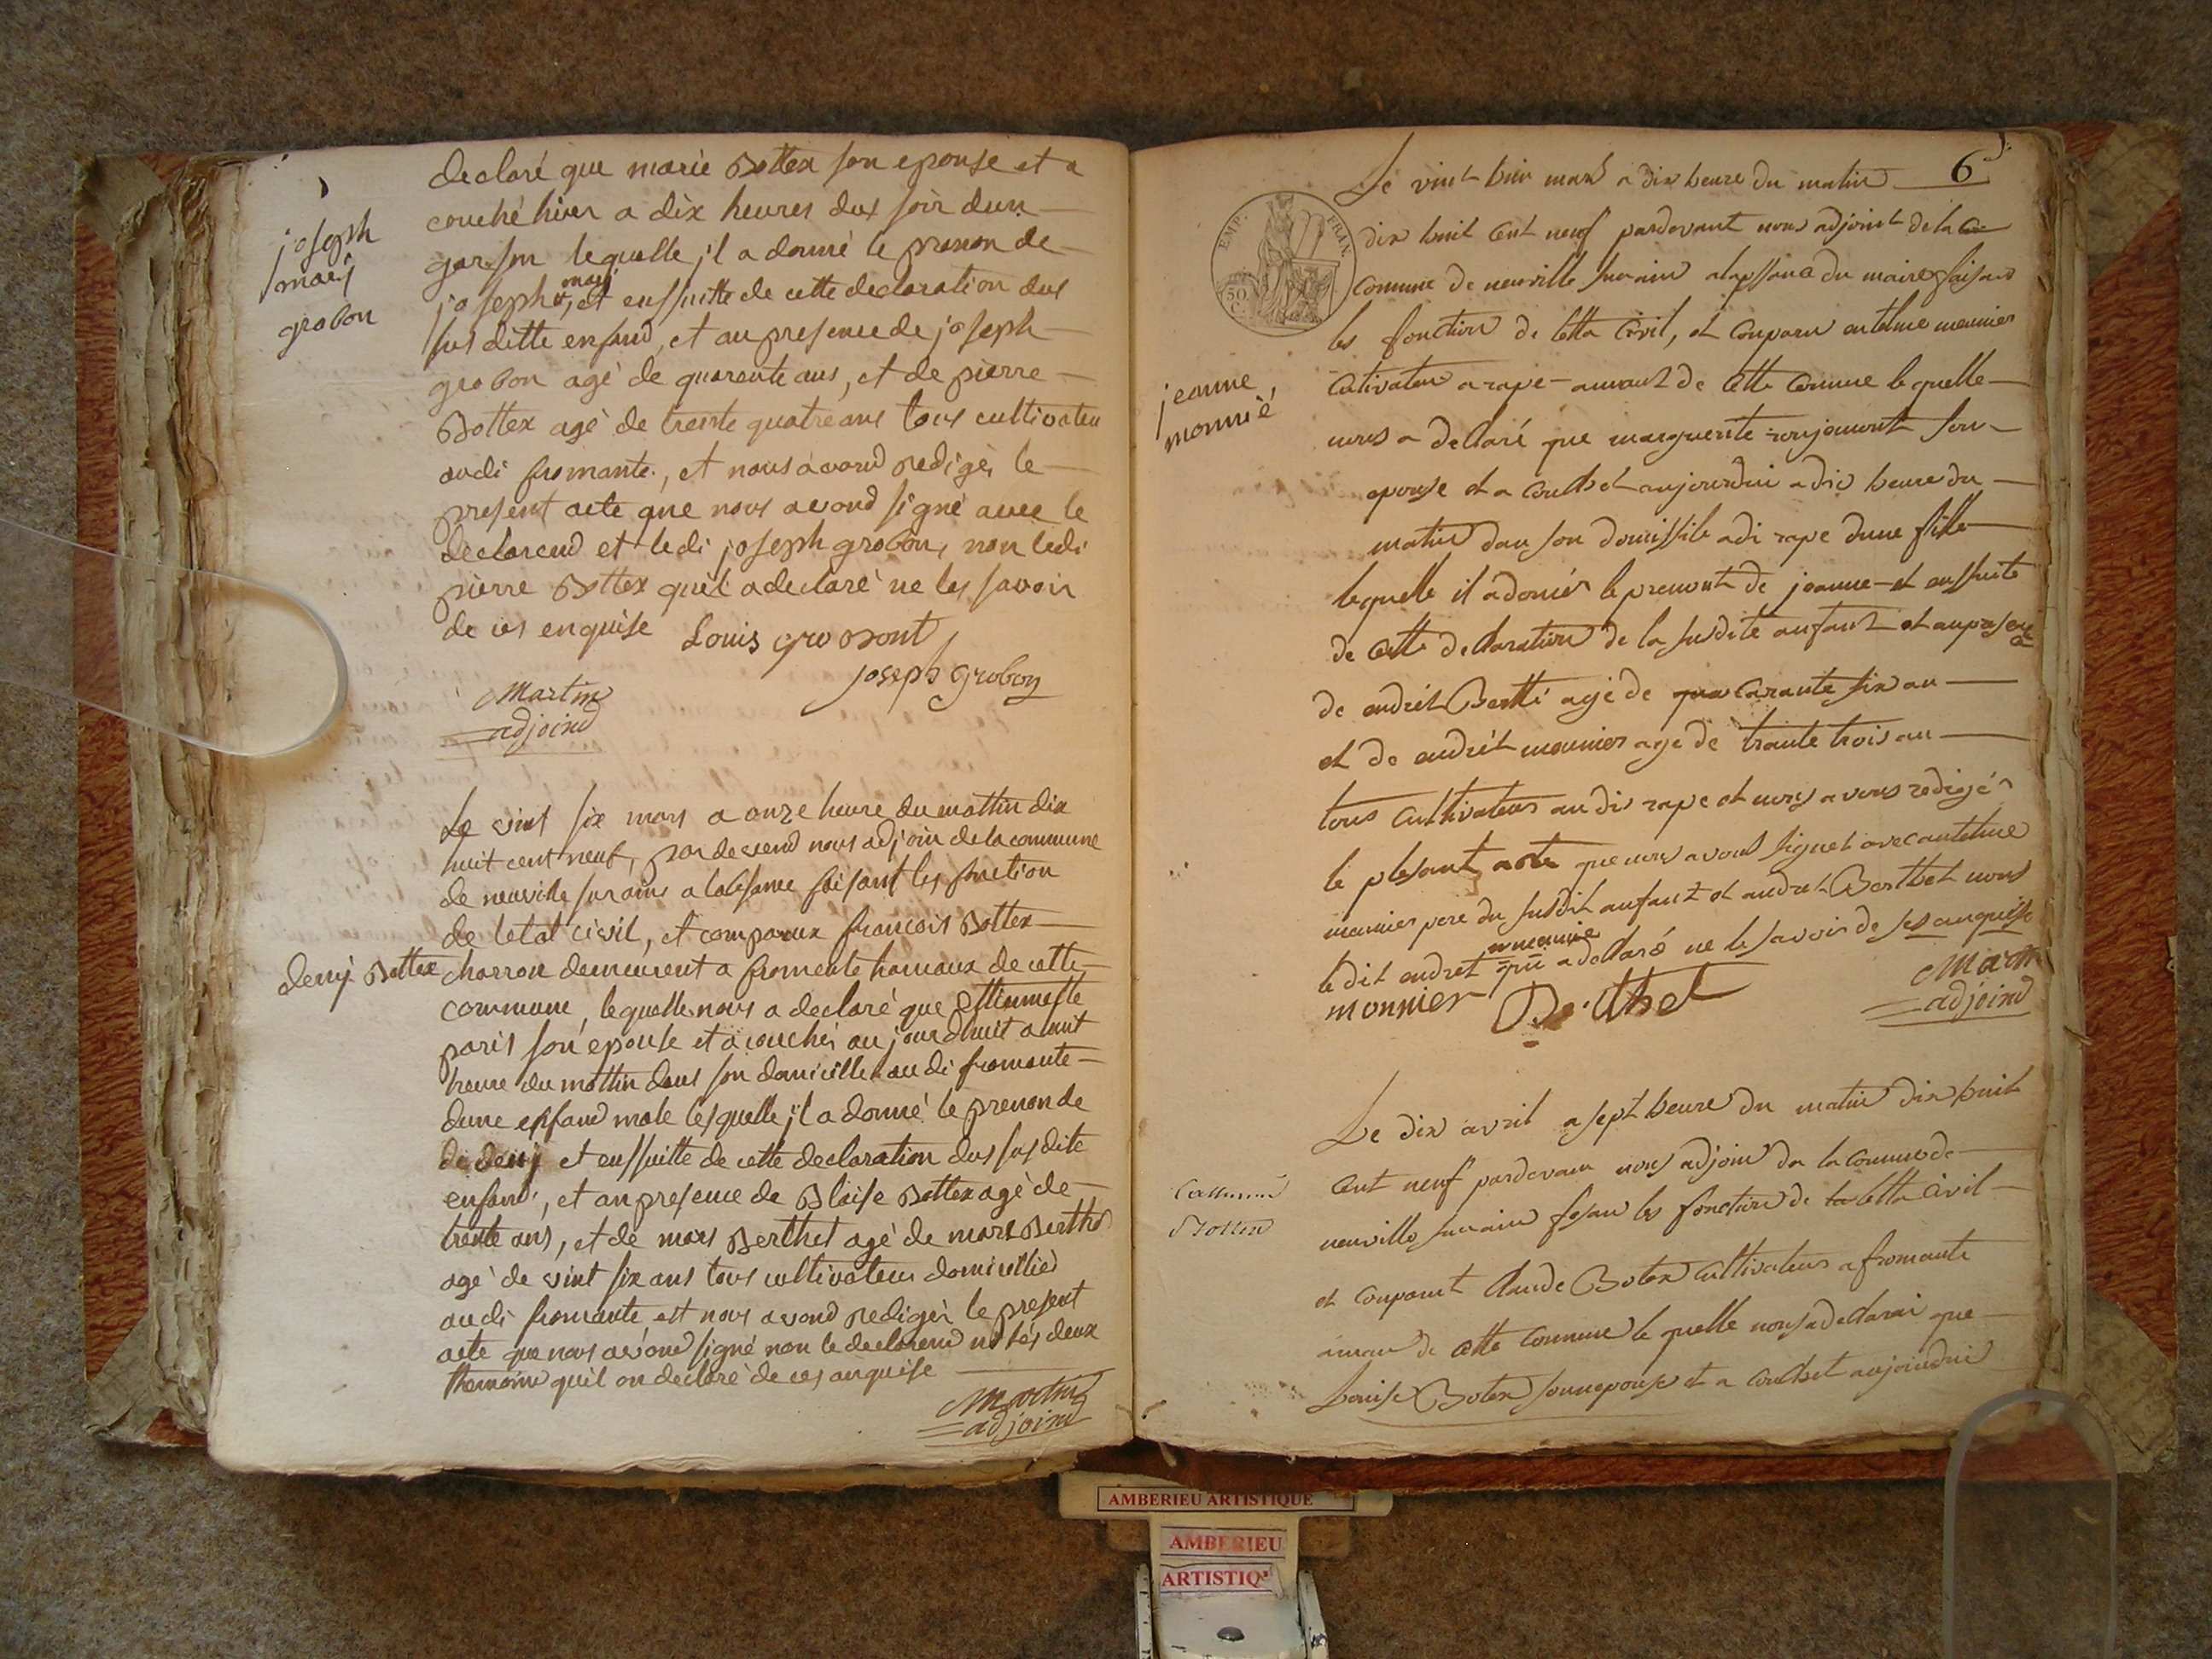 joseph
marij
grobon
declaré que marie Bottex son epouse et a
couché hiver a dix heures dus soir dun
garson lequelle jl a donné le prenon de
joseph marij, et ensuitte de cette declaration dus
sus ditte enfand, et au presence de joseph
grobon agé de quarente ans, et de pierre
Bottex agé de trente quatre ans tous cultivateu
audi fromante, et nous avond redigés le
present acte que nous avond signé avec le
declarend et ledi joseph grobon, non ledi
pierre Bottex qu'il a declaré ne les savoir
de ces enquise
Louis grobont
joseph Grobon
Martin
adjoind
denij Bottex
Le vint six mars a onze heure du mattin dix
huit cent neuf, par devend nous adjoin de la commune
de neuville sur ains a labsance faisant les fonction
de letat civil, et comparux francois Bottex
charron demeurent a fromente hamaux de cette
commune, lequelle nous a declaré que Ettiennette
paris son epouse et a couchés au jourdhuit a uit
heure du mattin dans son domicille au di fromante
dune enfand male lesquelle jl a donné le prenon de
de denij et ensuitte de cette declaration dus sus dite
enfand, et au presence de Blaise Bottex agé de
trente ans, et de mars Berthet agé de mars Berthet
agé de vint six ans tous cultivateur domicillied
audi fromante, est nous avond redigés le present
acte que nous avond signé non le declarend ni lés deux
themoin quil on declaré de ces anquise
Martin
adjoind
6
EMP. FRAN.
50 C.
jeanne
monnié
Le vint huir mars a dix heure du matin
dix huit cent neuf pardevant nous adjoint de la
comune de neuville sur ain alapssance du maire faisans
les fonction de letta civil, et conparu antelme meunier
cutivateur a rape amaux de cette comune lequelle
nous a dellaré que marguerite roujemont son
epouse et a couchet aujourdui a dix heure du
matin dan son domissile adi rape dune fille
lequelle il a donér le prenont de jeanne et ensuite
de cette dellaration de la susdite anfant et au presence
de andrét Bertté agé de qua carante six an
et de andrét meunier age de trante trois an
tous cultivateur au di rape et nous avons redigé
le plesant acte que nous avons signet avec antelme
meunier pere du susdit anfant et andret Berthet nons
le dit andret meunier qui a dellaré ne le savoir de ses anquise
monnier
Berthet
Martin
adjoind
Bottex
Le dix avril a sept heure du matin dix huit
cent neuf pardevan nous adjoin de la comune de
neuville sur ain fesan les fonction de la letta civil
et conparut claude Botex cultivateur a fromante
amau de cette comune le quelle nous a dellarai que
Louise Botex sonnepouse et a couchet aujourdui
AMBERIEU ARTISTIQUE
AMBERIEU
ARTISTIQ